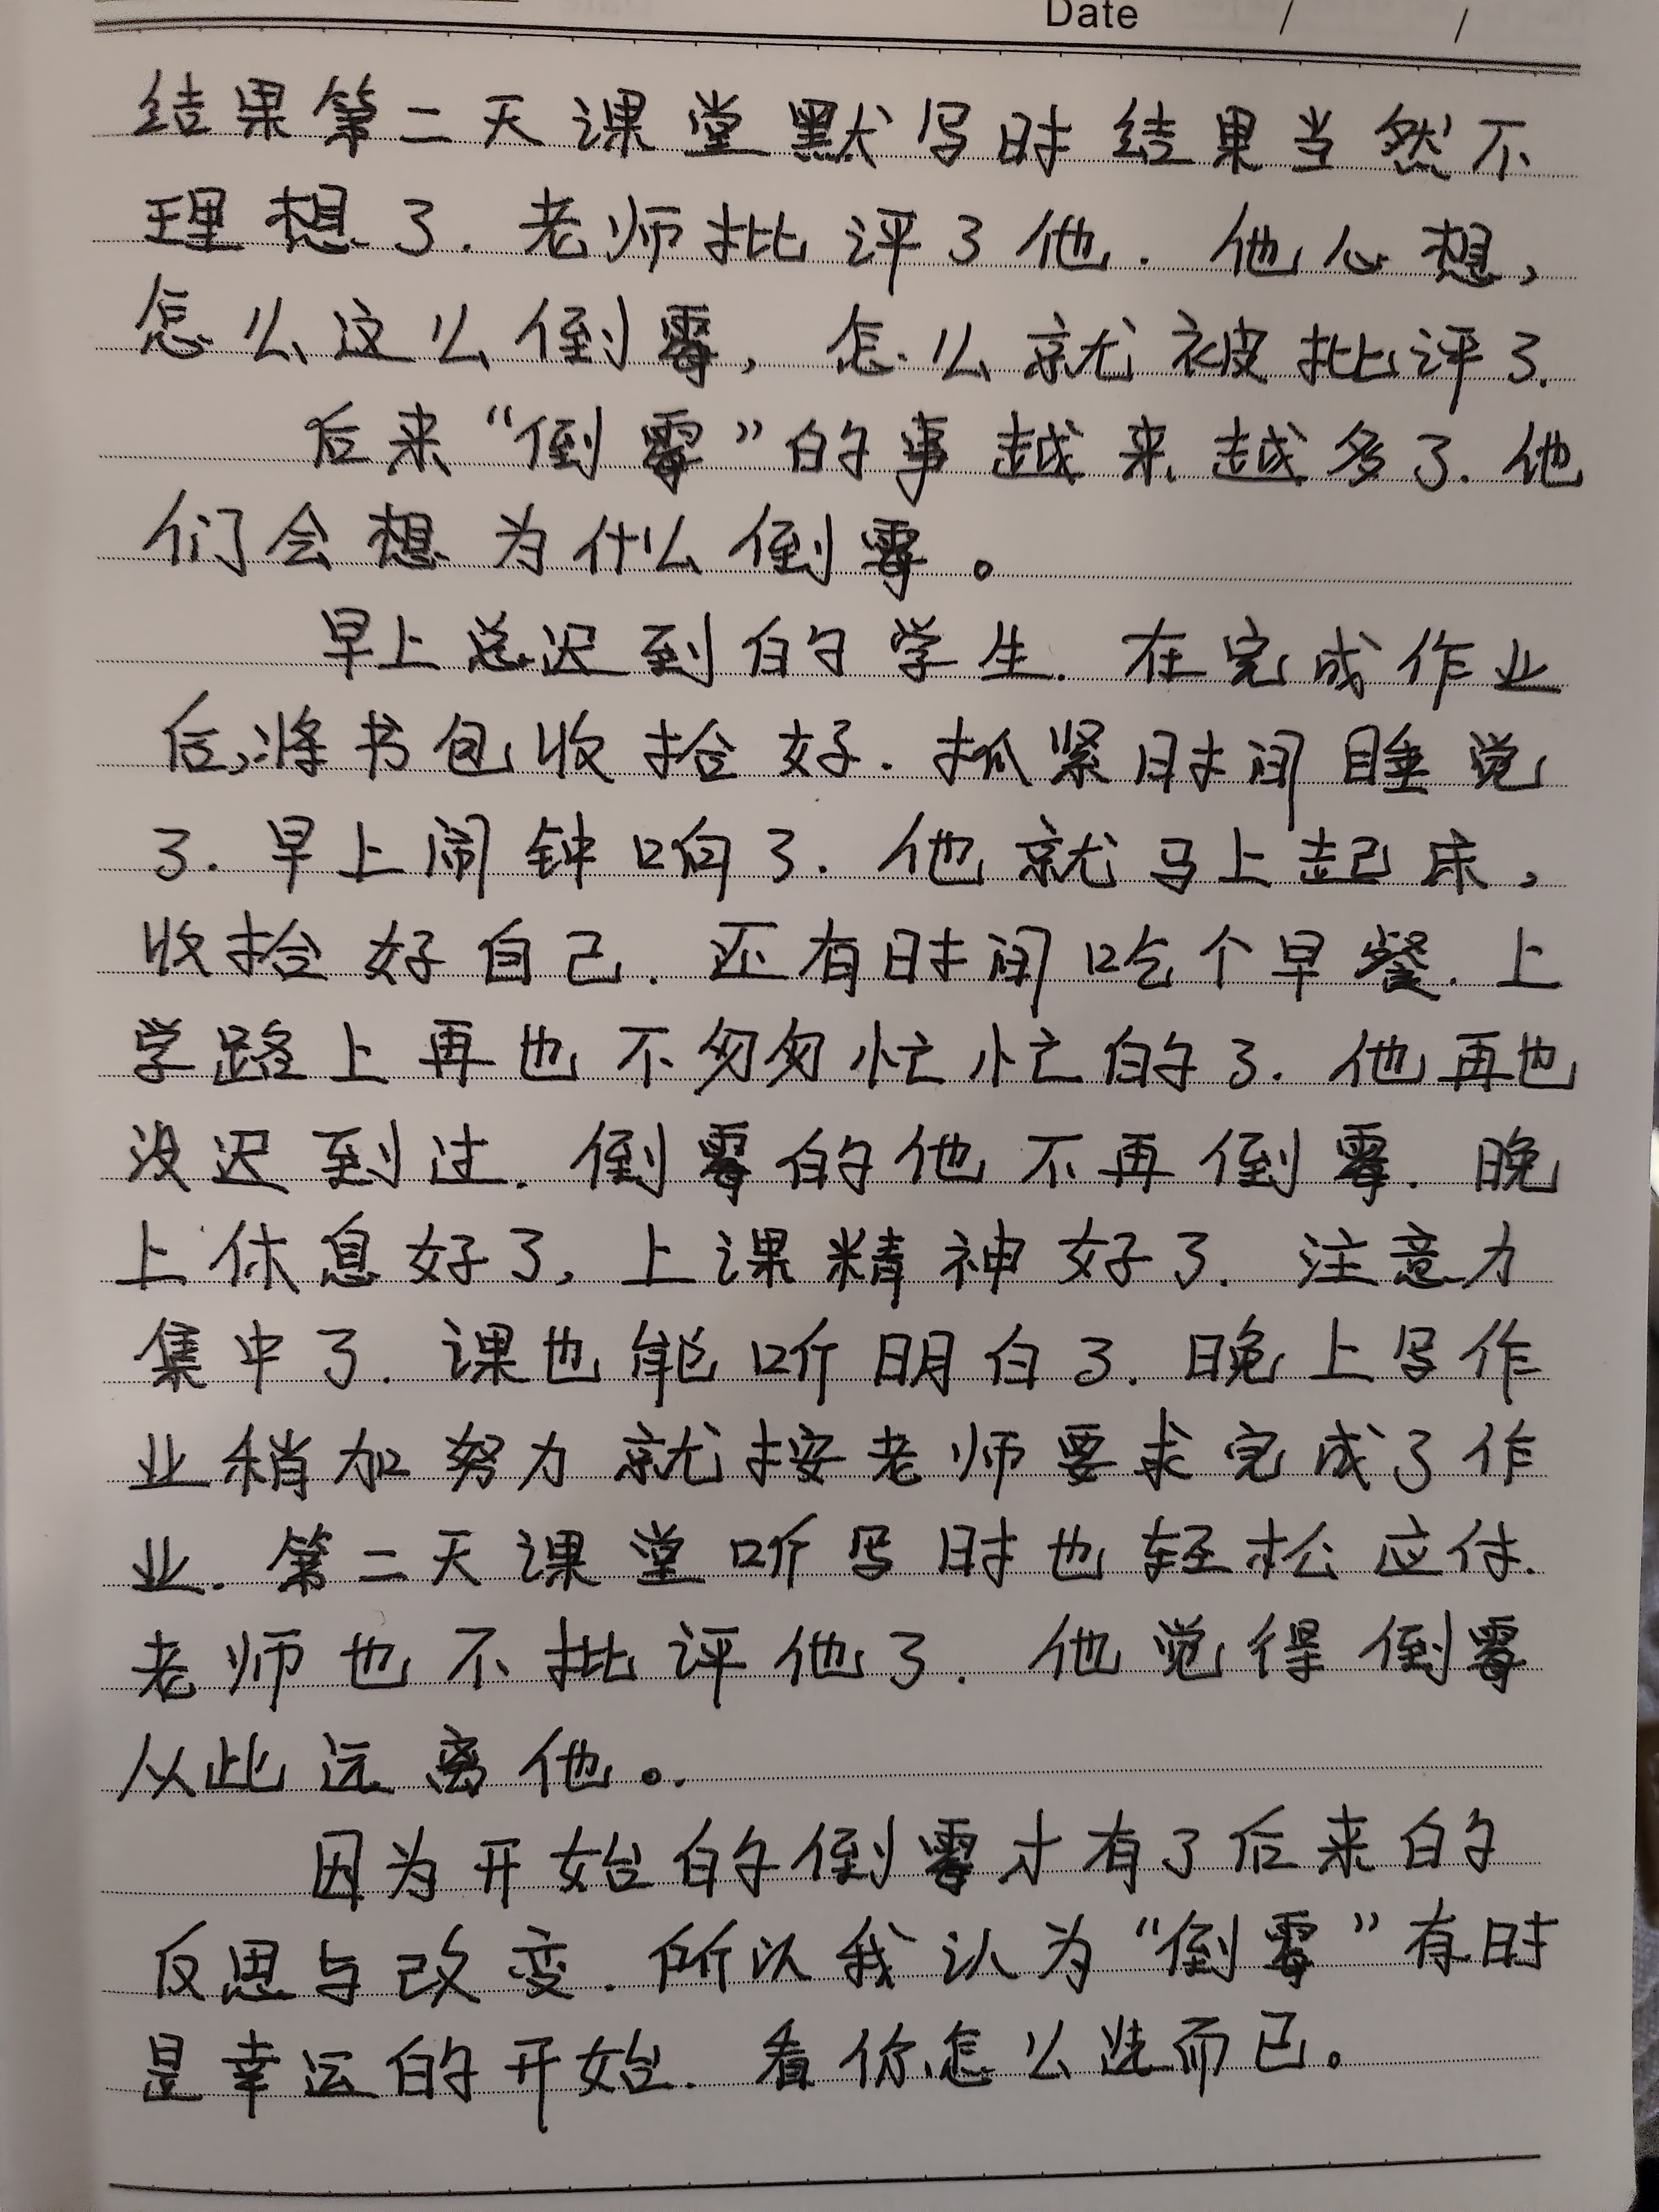 Date / /
结果第二天课堂默写时结果当然不
理想了.老师批评了他.他心想,
怎么这么倒霉,怎么就被批评了.
后来“倒霉”的事越来越多了.他
们会想为什么倒霉。
早上总迟到的学生.在完成作业
后,将书包收拾好.抓紧时间睡觉
了.早上闹钟响了.他就马上起床,
收拾好自己.还有时间吃个早餐.上
学路上再也不匆匆忙忙的了.他再也
没迟到过.倒霉的他不再倒霉.晚
上休息好了,上课精神好了.注意力
集中了.课也能听明白了.晚上写作
业稍加努力就按老师要求完成了作
业.第二天课堂听写时也轻松应付.
老师也不批评他了.他觉得倒霉
从此远离他。
因为开始的倒霉才有了后来的
反思与改变.所以我认为“倒霉”有时
是幸运的开始.看你怎么选而已。